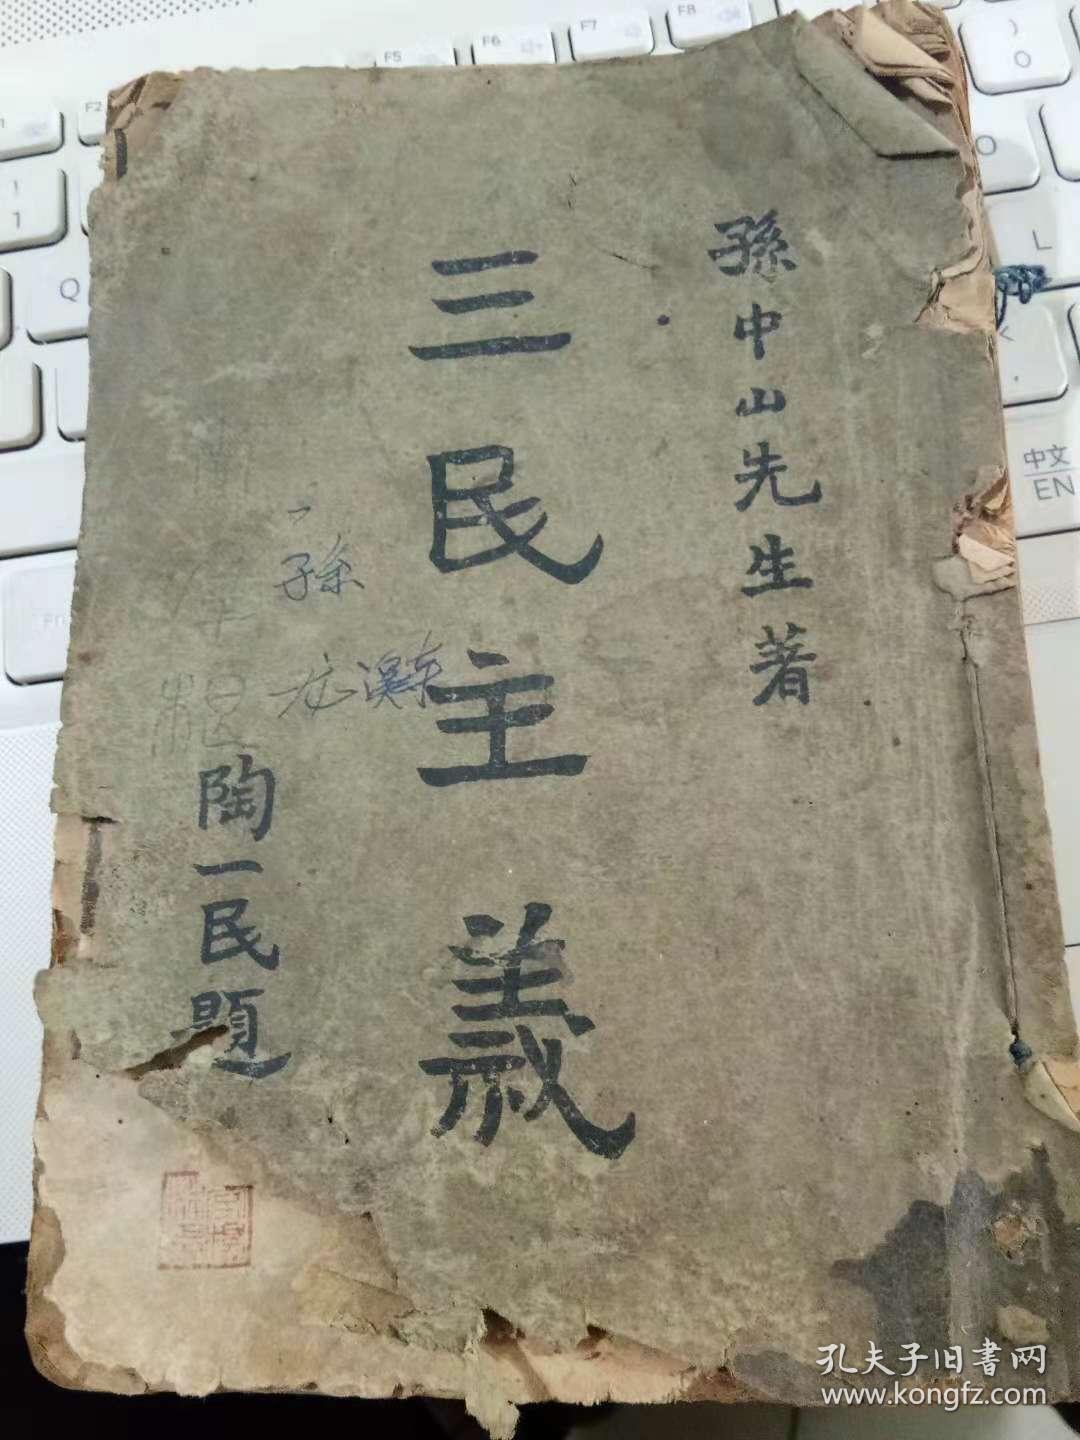 孫中山先生著
三民主義
陶一民題
孫
F2
F5
F6
F7
F8
Q
1
1
)
0
O
L
<
中文
EN
Fn
孔夫子旧書网
www.kongfz.com